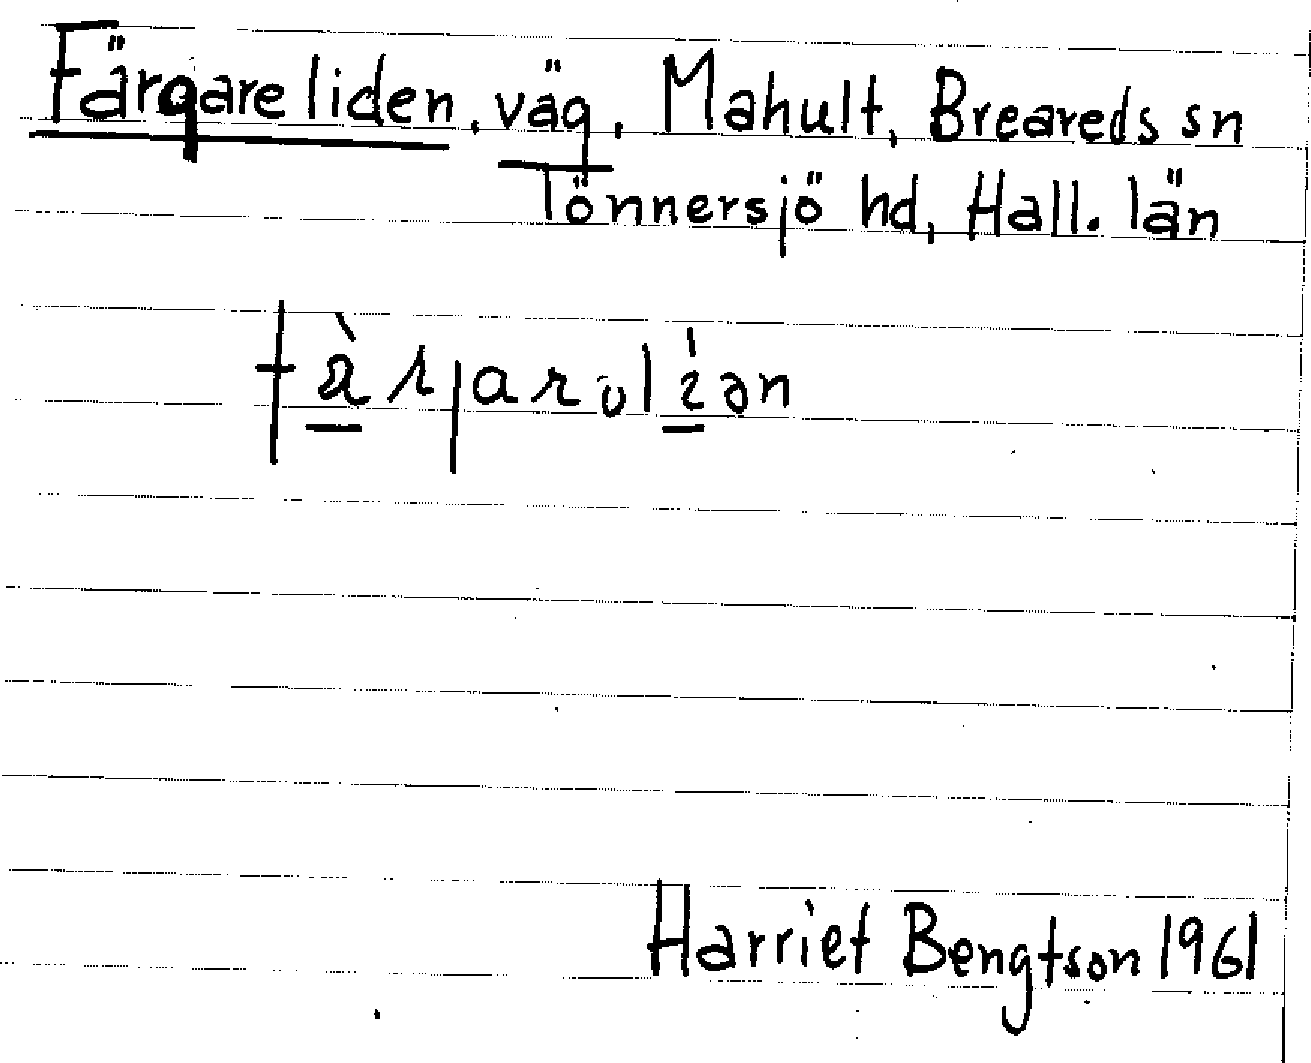 Färgareliden, väg, Mahult, Breareds sn
Tönnersjö hd, Hall. län
Harriet Bengtson 1961